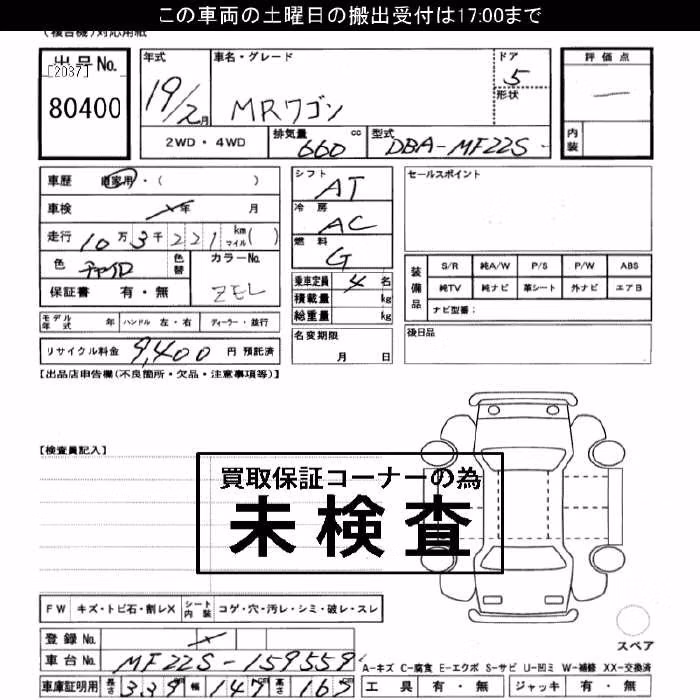 この車両の土曜日の搬出受付は17:00まで
(複合機)対応用紙
出品No. 年式 車名・グレード ドア 評価点
[2037]
80400 19/2月 MRワゴン 5
形状
2WD・4WD 排気量 660 cc 型式 DBA-MF22S- 内装
車歴 自家用・( ) シフト AT セールスポイント
車検 年 月 冷房 AC
走行 10万3千221 km マイル( ) 燃料 G
色 色替 カラーNo. ZEL 乗車定員 4名
保証書 有・無 積載量 kg
総重量 kg
装備品 S/R 純A/W P/S P/W ABS
純TV 純ナビ 革シート 外ナビ エアB
ナビ型番:
モデル年式 年 ハンドル 左・右 ディーラー・並行 名変期限 月 日 後日品
リサイクル料金 9,400 円 預託済
【出品店申告欄(不良箇所・欠品・注意事項等)】
【検査員記入】
買取保証コーナーの為
未検査
FW キズ・トビ石・割レX シート内装 コゲ・穴・汚レ・シミ・破レ・スレ
登録No. スペア
車台No. MF22S-159559 A-キズ C-腐食 E-エクボ S-サビ U-凹ミ W-補修 XX-交換済
車庫証明用 長さ 339cm 幅 147cm 高さ 165 工具 有・無 ジャッキ 有・無